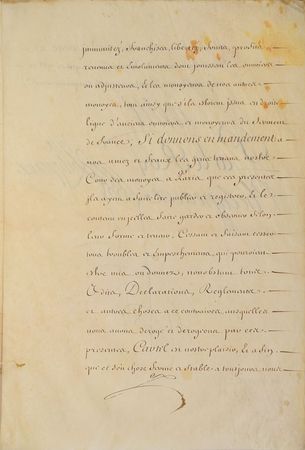 immunitez, franchises, libertez, honn.rs, profitz
revenus et Emolumens dont jouissent les ouvriers
ou adjusteurs, & les monoyeurs de nos autres
monoyes, tout ainsy que s'ils estoient yssus en droite
ligne d'anciens ouvriers et monoyeurs du Serment
de france, Si donnons en mandement
a nos amez et feaux les gens tenans nostre
Cour des monoyes a Paris, que ces presentes
ils ayent a faire lire publier et registrer, & le
contenu en jcelles faire garder et observer selon
leur forme et teneur, Cessant et faisant cesser
tous troubles et Empeschemens, qui pourroient
estre mis ou donnez, nonobstant tous
Edits, Declarations, Reglemens
et autres choses a ce contraires, ausquelles
nous avons derogé et derogeons par ces
presentes, Car tel est nostre plaisir, & a fin
que ce soit chose ferme et stable a tousjours nous